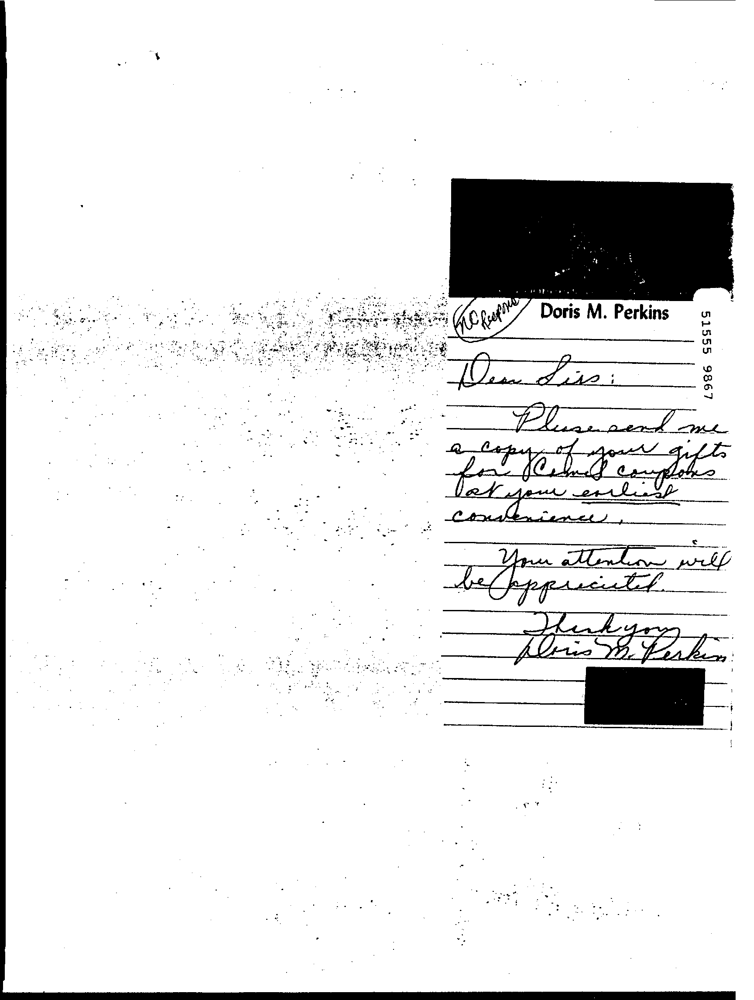 No Response
Doris M. Perkins
51555 9867
Dear Sirs:
Please send me
a copy of your gifts
for Camel coupons
at your earliest
convenience.
Your attention will
be appreciated.
Thank you
Doris M. Perkins